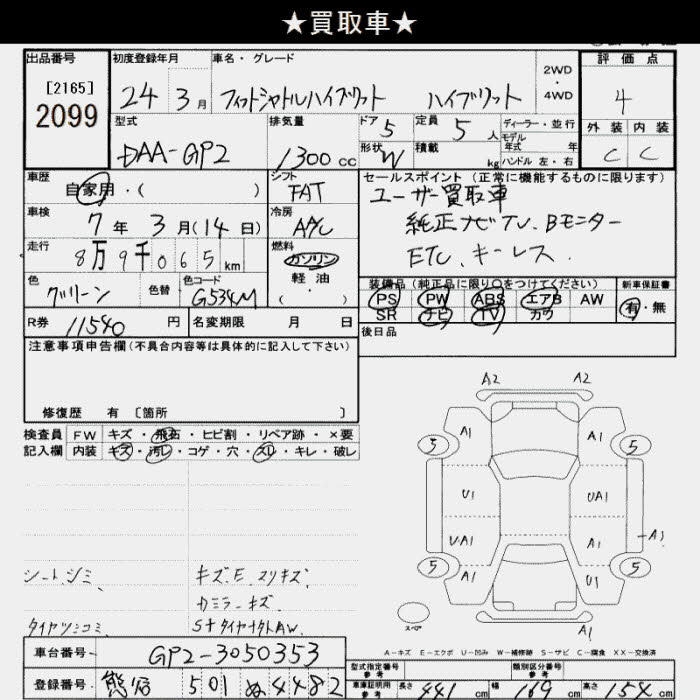 ★買取車★
出品番号
[2165]
2099
初度登録年月
24 3月
車名・グレード
フィットシャトルハイブリット ハイブリット
2WD
・
4WD
評価点
4
外装 内装
C C
型式
DAA-GP2
排気量
1300 CC
ドア 5
定員 5 人
形状 W
積載 kg
ディーラー・並行
モデル
年式 年
ハンドル 左・右
車歴
自家用・( )
シフト
FAT
車検
7年 3月(14日)
冷房
A/C
走行
8万9千065km
燃料
ガソリン
軽油
・( )
色
グリーン
色替
色コード
G534M
R券 11540 円
名変期限 月 日
セールスポイント(正常に機能するものに限ります)
ユーザー買取車
純正ナビTV、Bモニター
ETC、キーレス.
装備品(純正品に限り○をつけてください)
PS PW ABS エアB AW
SR ナビ TV カワ
新車保証書
有・無
後日品
注意事項申告欄(不具合内容等は具体的に記入して下さい)
修復歴 有 〔箇所 〕
検査員 FW キズ・飛石・ヒビ割・リペア跡・×要
記入欄 内装 キズ・汚レ・コゲ・穴・スレ・キレ・破レ
シートシミ、 キズ、E、スリキズ、
カミラーキズ
タイヤツミコミ、 S+タイヤナットAW、
A2 A2
5 A1 A1 5
U1 UA1
UA1 A1 A1
5 A1 U1 5
スペア
A1
A-キズ E-エクボ U-凹み W-補修跡 S-サビ C-腐食 XX-交換済
車台番号 GP2-3050353
登録番号 熊谷 501 ぬ4482
型式指定番号
参考
類別区分番号
参考
車庫証明用
参考
長さ 441 cm 幅 169 cm 高さ 154 cm